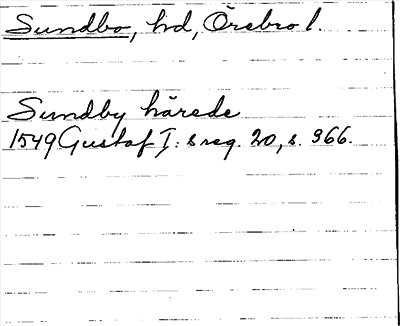 Sundbo, hd, Örebro l.
Sundby härede
1549 Gustaf I: s reg. 20, s. 366.